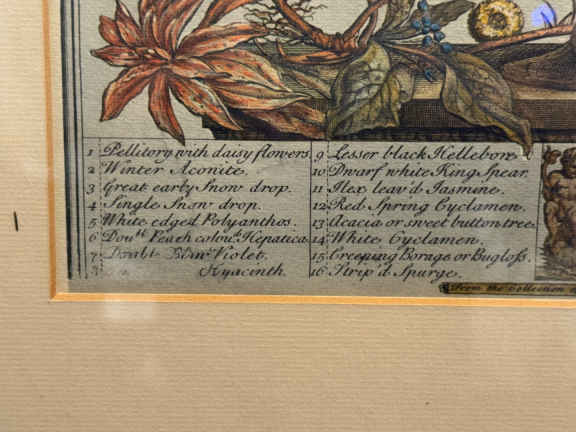 1 Pellitory with daisy flowers.
2 Winter Aconite.
3 Great early Snow drop.
4 Single Snow drop.
5 White edged Polyanthos.
6 Doub. Peach colour'd Hepatica
7 Violet.
8 Hyacinth.
9 Lesser black Hellebore
10 Dwarf white King Spear
11 Ilex leav'd Jasmine.
12 Red Spring Cyclamen.
13 Acacia or sweet button tree
14 White Cyclamen.
15 Creeping Borage or Bugloss.
16 Strip'd Spurge.
From the Collection